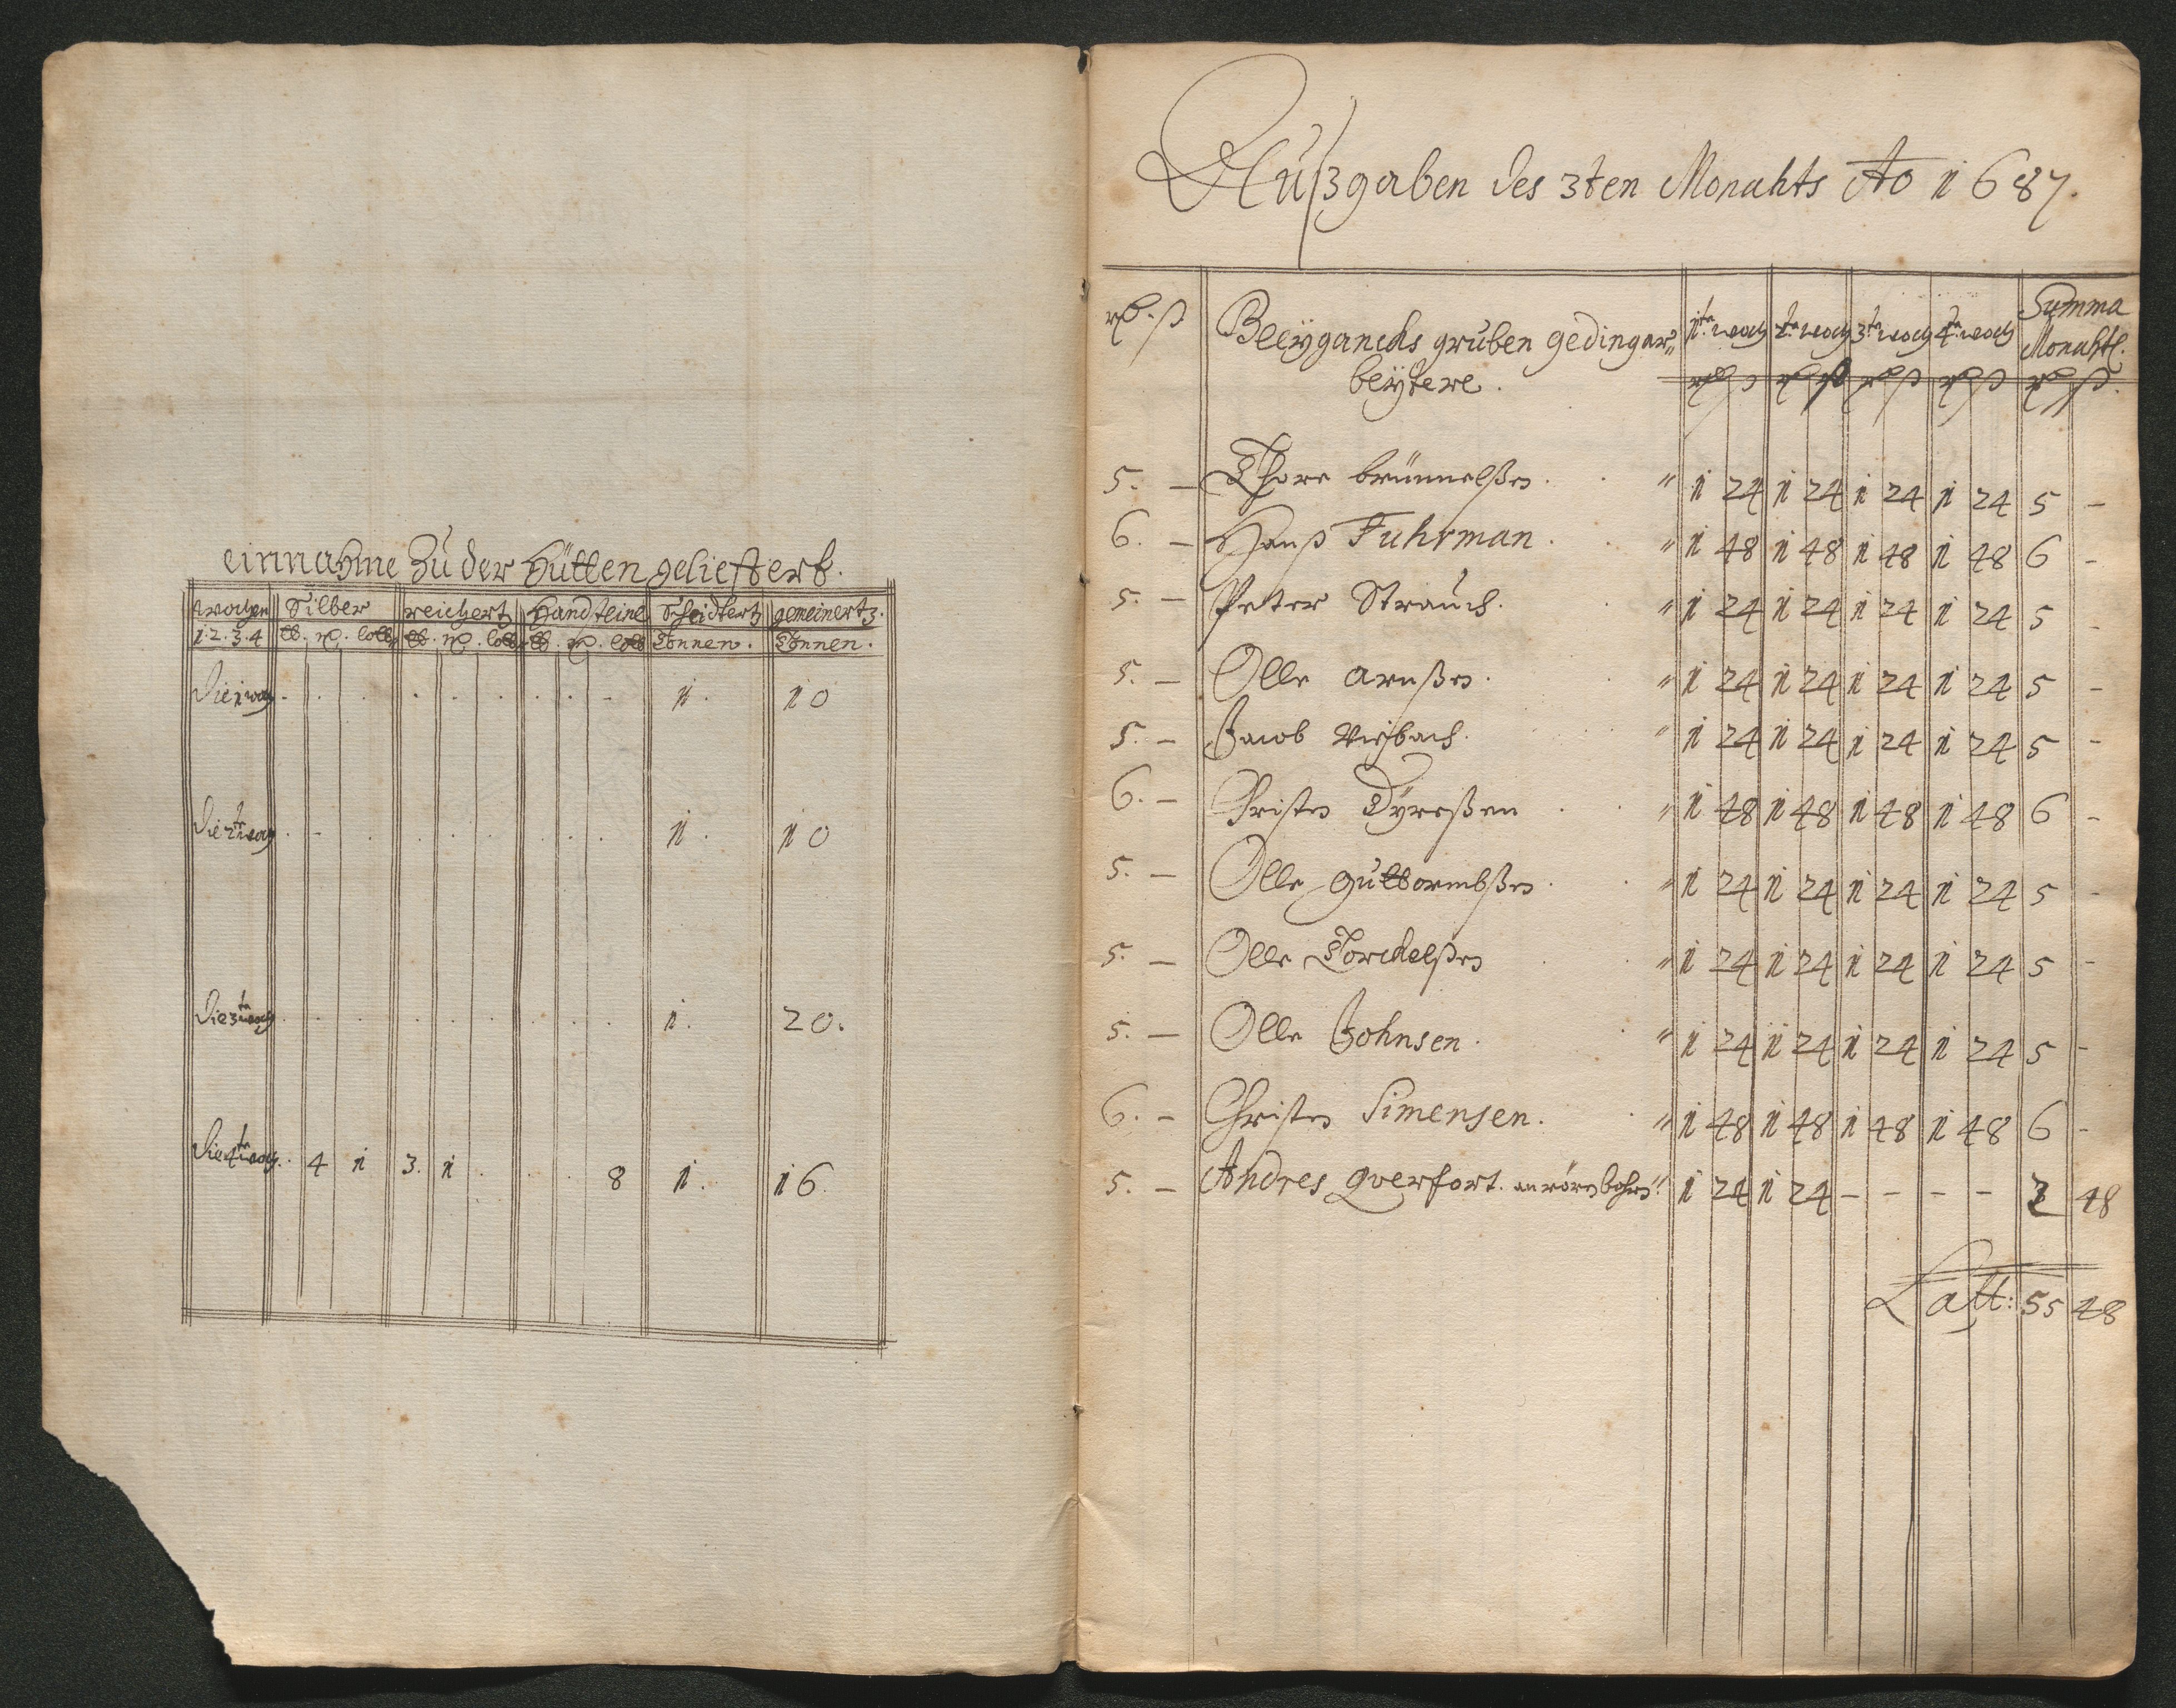 einnahme Zu der Hütten gelieffert.
wochen Silber reichertz Handsteine Scheidtertz gemeinertz.
1.2.3.4 lb. mß. loth lb. mß. loth lb. mß. loth Tonnen. Tonnen.
Die 1 woch . . . . . . . . - 1. 10
Die 2te woch . - . . . . . . . 1. 10
Die 3te woch . . . . . . . . . 1. 20.
Die 4te woch . 4 1 3. 1 . . . 8 1. 16
Außgaben des 3ten Monahts Ao 1687.
rß. ß Bleÿgancks gruben gedingar„ 1te woch 2te woch 3te woch 4te woch Summa
beÿtere. Monahtl.
rß ß rß ß rß ß rß ß rß ß.
5. — Thore brünnelßen . . " 1 24 1 24 1 24 1 24 5 -
6. — Hanß Fuhrman . . " 1 48 1 48 1 48 1 48 6 -
5. — Peter Strauch. . " 1 24 1 24 1 24 1 24 5 -
5. — Olle arnßen. . " 1 24 1 24 1 24 1 24 5 -
5. — Jacob . " 1 24 1 24 1 24 1 24 5 -
6. — Christen Tÿreßen . . " 1 48 1 48 1 48 1 48 6 -
5. — Olle guttormbßen . . " 1 24 1 24 1 24 1 24 5 -
5. — Olle Torckelßen . . " 1 24 1 24 1 24 1 24 5 -
5. — Olle Johnsen . . " 1 24 1 24 1 24 1 24 5 -
6. — Christen Simensen. . " 1 48 1 48 1 48 1 48 6 -
5. — Andres Qverfort. " 1 24 1 24 - - - - 2 48
Latt: 55 48